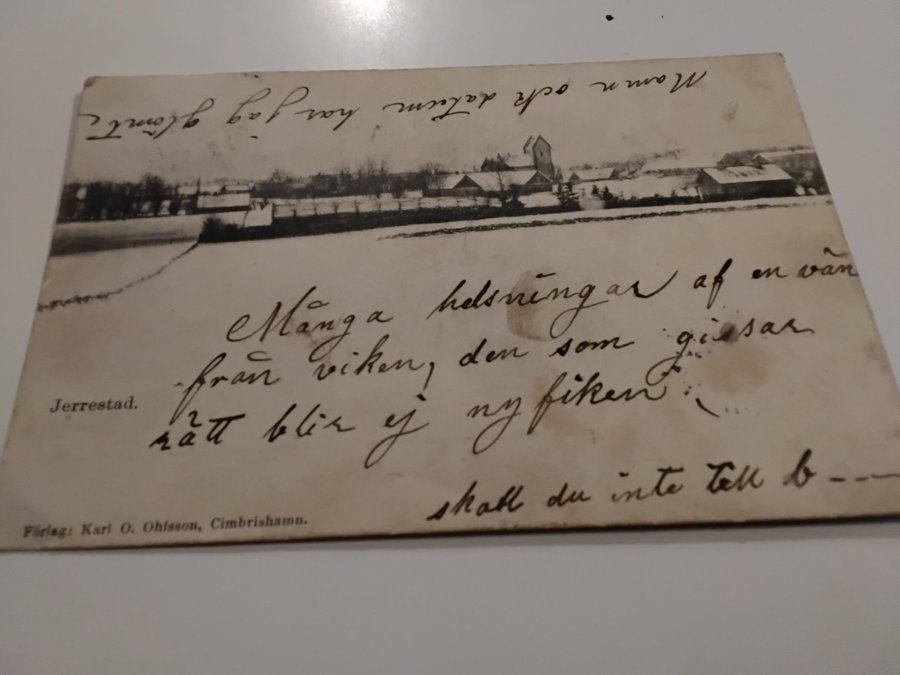 Mamn och datum har jag glömt
Många helsningar af en vän
från viken, den som gissar
rätt blir ej nyfiken
Jerrestad.
skall du inte till b---
Förlag: Karl O. Ohlsson, Cimbrishamn.